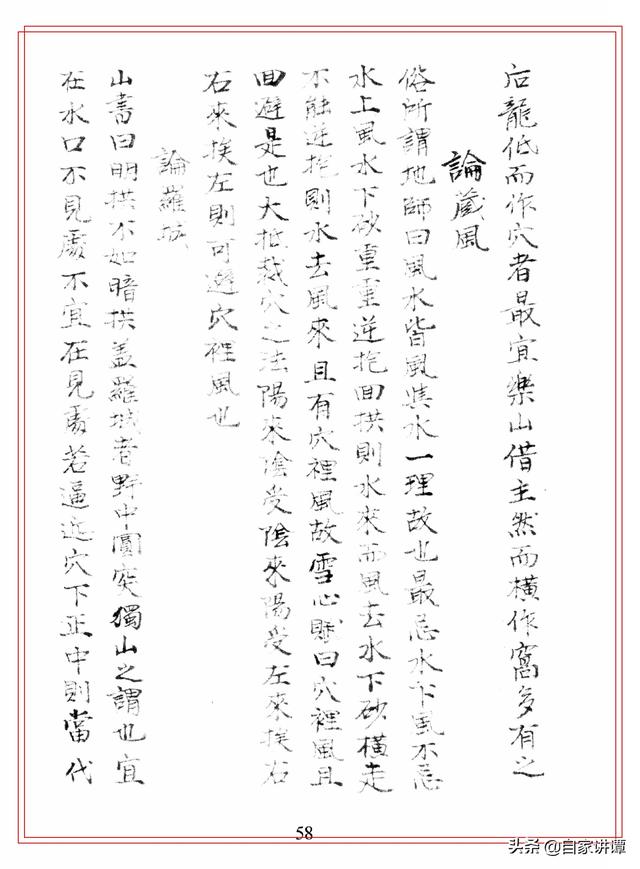 后龍低而作穴者最宜樂山借主然而橫作窩多有之
論藏風
俗所謂地師曰風水皆風與水一理故也最忌水下風不忌
水上風水下砂重重逆抱回拱則水來而風去水下砂橫走
不能逆抱則水去風來且有穴裡風故雪心賦曰穴裡風且
回避是也大抵裁穴之法陽來陰受陰來陽受左來挨右
右來挨左則可避穴裡風也
論羅城
山書曰明拱不如暗拱盖羅城者野中圓突獨山之謂也宜
在水口不見處不宜在見處若逼近穴下正中則當代
58
头条 @自家讲谭